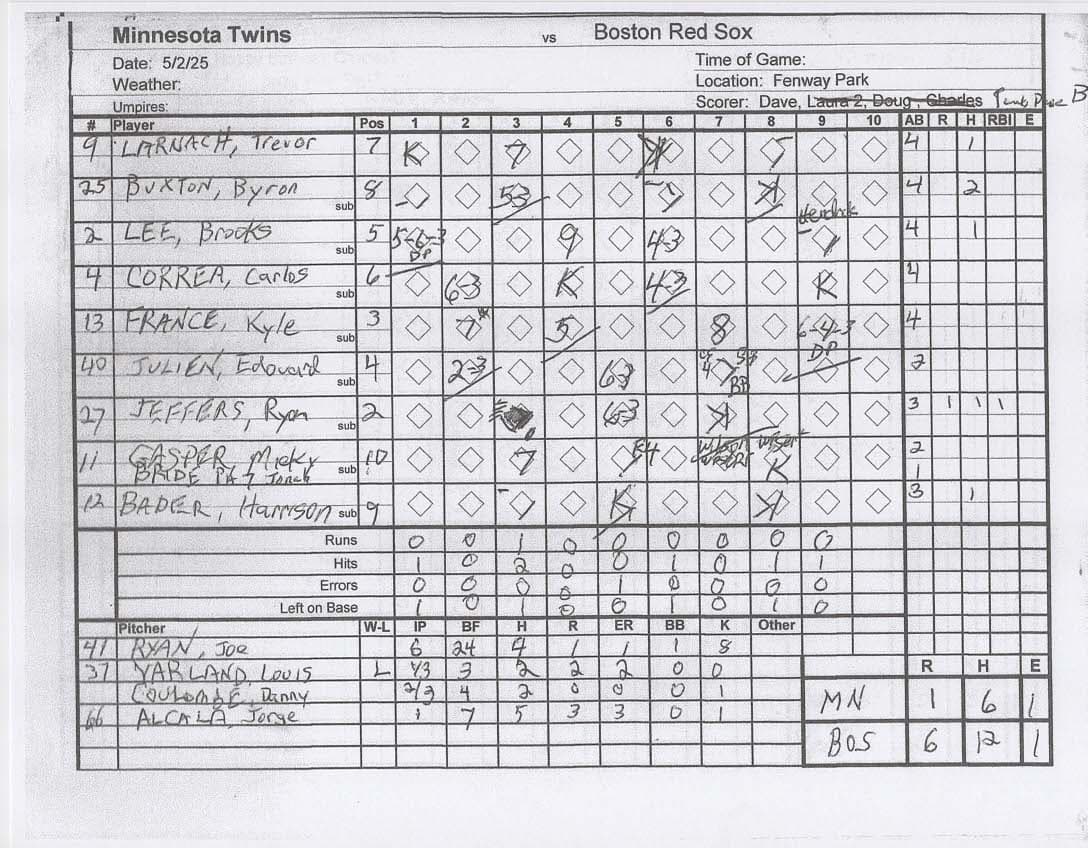 Minnesota Twins vs Boston Red Sox
Date: 5/2/25 Time of Game:
Weather: Location: Fenway Park
Umpires: Scorer: Dave, Laura 2, Doug, Charles
# Player Pos 1 2 3 4 5 6 7 8 9 10 AB R H RBI E
9 LARNACH, Trevor 7 K 7 4 1
25 BUXTON, Byron sub 8 53 K 4 2
2 LEE, Brooks sub 5 5-6-3 DP 9 4-3 4 1
4 CORREA, Carlos sub 6 6-3 K 4-3 K 4
13 FRANCE, Kyle sub 3 7 5 8 6-4-3 DP 4
40 JULIEN, Edouard sub 4 2-3 63 BB 2
27 JEFFERS, Ryan sub 2 6-3 K 3 1 1 1
11 GASPER, Micky 10 7 E4 K 2
BRIDE PA 7 Jonah sub 1
12 BADER, Harrison sub 9 K K 3 1
Runs 0 0 1 0 0 0 0 0 0
Hits 1 0 2 0 0 1 0 1 1
Errors 0 0 0 0 1 0 0 0 0
Left on Base 1 0 1 0 0 1 0 1 0
Pitcher W-L IP BF H R ER BB K Other
41 RYAN, Joe 6 24 4 1 1 1 8
37 VARLAND, LOUIS L 1/3 3 2 2 2 0 0
COULOMBE, Danny 2/3 4 2 0 0 0 1
66 ALCALA, Jorge 1 7 5 3 3 0 1
R H E
MN 1 6 1
BOS 6 12 1